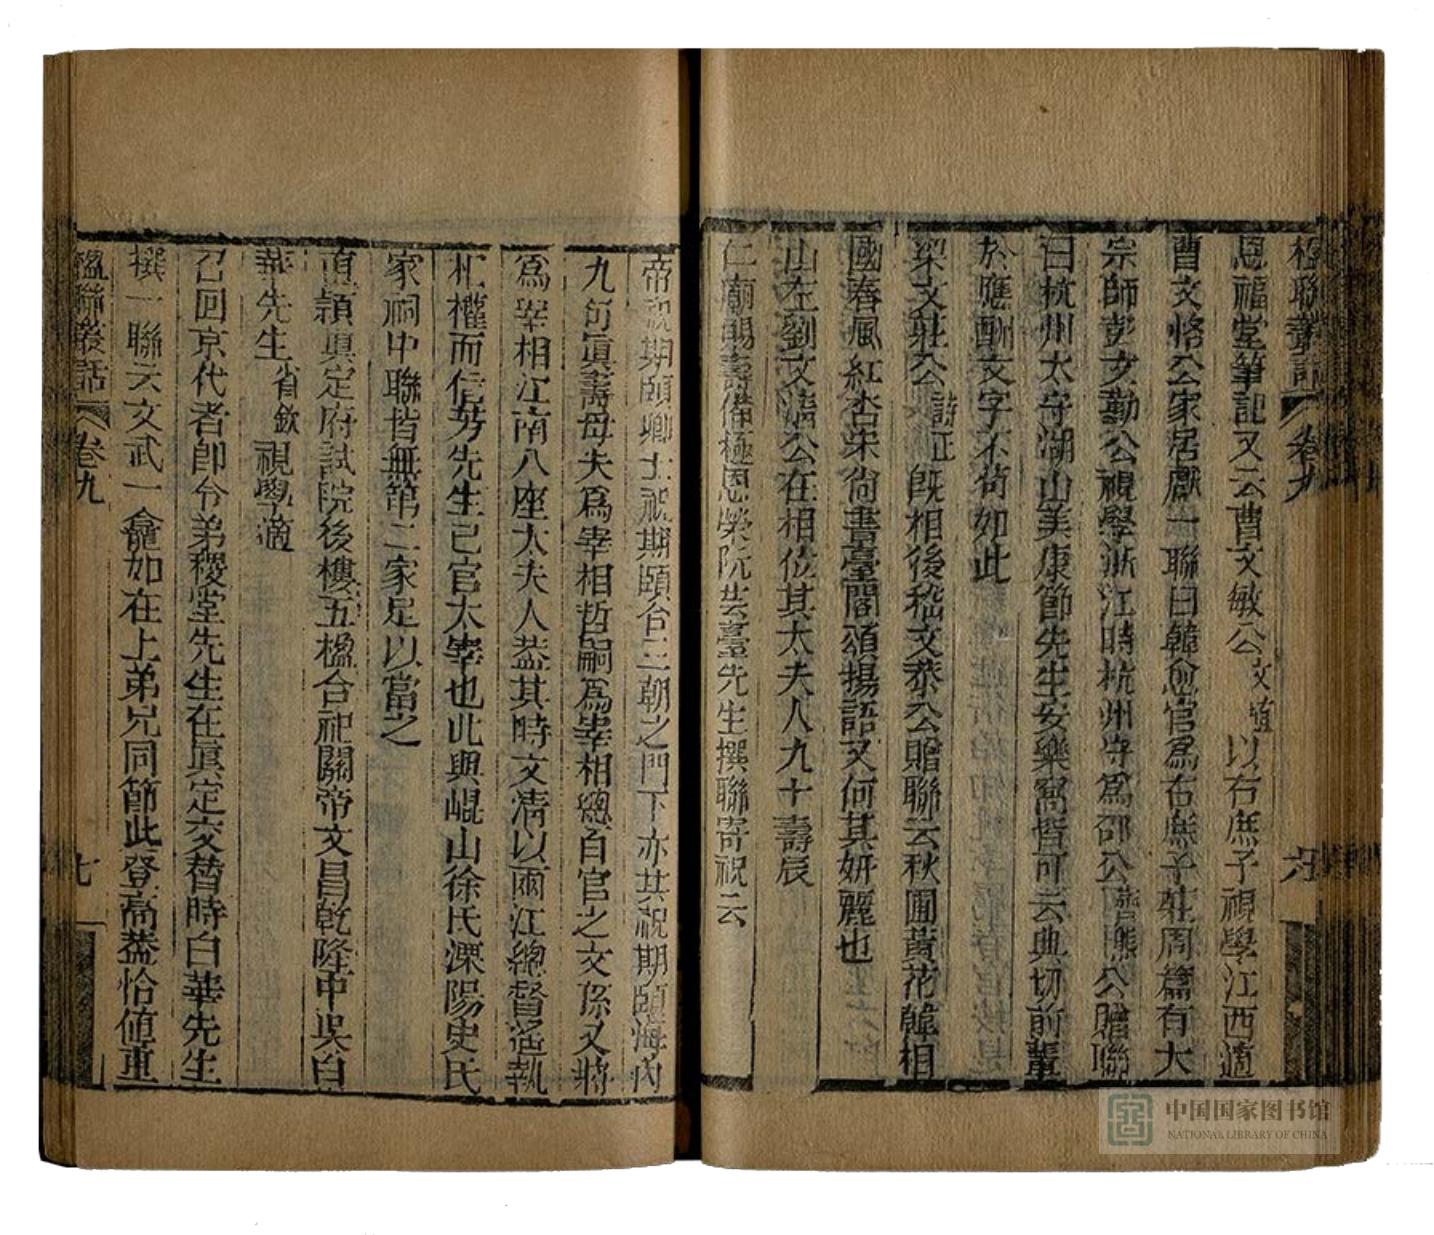 楹聯叢話 卷九 六
恩福堂筆記又云曹文敏公文埴以右庶子視學江西適
曹文恪公家居獻一聯曰韓愈官爲右庶子莊周篇有大
宗師彭文勤公視學浙江時杭州守爲邵公齊熊公贈聯
曰杭州太守湖山美康節先生安樂窩皆可云典切前輩
於應酬文字不茍如此
梁文莊公詩正旣相後嵇文恭公贈聯云秋圃黃花韓相
國春風紅杏宋尙書臺閣頌揚語又何其妍麗也
山左劉文淸公在相位其太夫人九十壽辰
仁廟賜壽備極恩榮阮芸臺先生撰聯寄祝云
帝祝期頤卿士祝期頤合三朝之門下亦共祝期頤海內
九旬眞壽母夫爲宰相哲嗣爲宰相總百官之文孫又將
爲宰相江南八座太夫人葢其時文淸以兩江總督遙執
化權而信芳先生已官太宰也此與崐山徐氏溧陽史氏
家祠中聯皆無第二家足以當之
直隸眞定府試院後樓五楹合祀關帝文昌乾隆中吳白
華先生省欽視學適
召回京代者卽令弟稷堂先生在眞定交替時白華先生
撰一聯云文武一龕如在上弟兄同節此登高葢恰値重
楹聯叢話 卷九 七
中国国家图书馆
NATIONAL LIBRARY OF CHINA